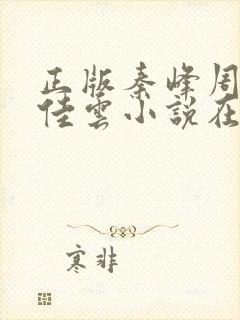 正版秦峰周
佳雲小說在
寒非